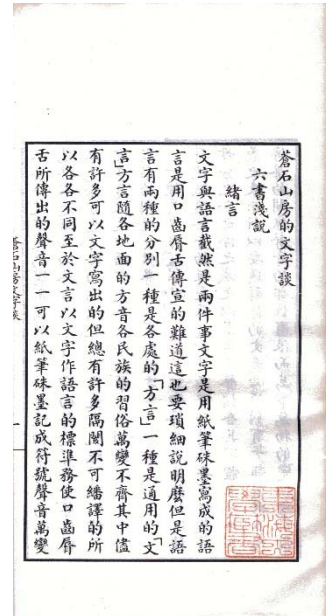 蒼石山房的文字談
六書淺說
緒言
文字與語言截然是兩件事文字是用紙筆硃墨寫成的語
言是用口齒脣舌傳宣的難道這也要瑣細說明麼但是語
言有兩種的分別一種是各處的「方言」一種是通用的「文
言」方言隨各地面的方音各民族的習俗萬變不齊其中儘
有許多可以文字寫出的但總有許多隔閡不可繙譯的所
以各各不同至於文言以文字作語言的標準務使口齒脣
舌所傳出的聲音一一可以紙筆硃墨記成符號聲音萬變
蒼石山房文字談
一